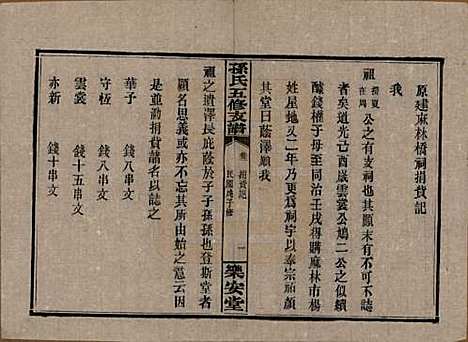 原建麻林橋祠捐貲記
我
祖捐夏在周公之有支祠也其顛末有不可不誌
者矣道光己酉咸雲雲公鳩二公之似續
醵錢權子母至同治壬戌得購麻林市楊
姓屋地又二年乃更為祠宇以奉宗祧顏
其堂曰蔭澤順我
孫氏五修支譜
卷
捐貲記
民國戊子修
一
樂安堂
祖之遺澤長庇蔭於子子孫孫也登斯堂者
顧名思義或亦不忘其所由始之意云因
是並勒捐貲諸名以垂久
華予 錢八串文
桂榜 錢八串文
雲裳 錢十五串文
亦新 錢十串文